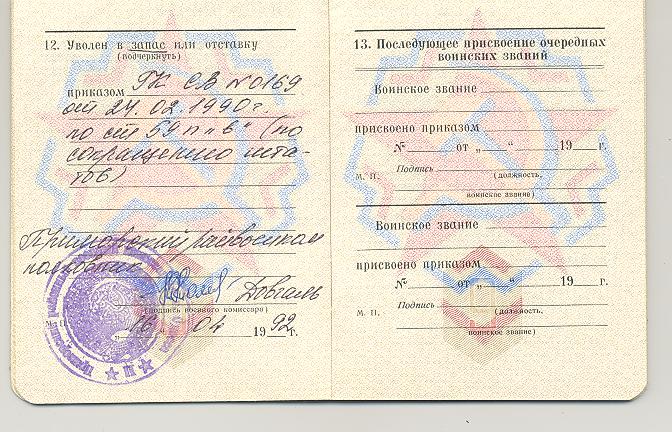 12. Уволен в запас или отставку
(подчеркнуть)
приказом ГК СВ №0169
от 24.02.1990г.
по ст 59 п „б“ (по
сокращению шта-
тов)
Приморский райвоенком
полковник
Довгаль
(подпись военного комиссара)
М. П.
„16“ 04 1992г.
13. Последующее присвоение очередных
воинских званий
Воинское звание
присвоено приказом
№ от „ “ 19 г.
М. П. Подпись
(должность,
воинское звание)
Воинское звание
присвоено приказом
№ от „ “ 19 г.
М. П. Подпись
(должность,
воинское звание)